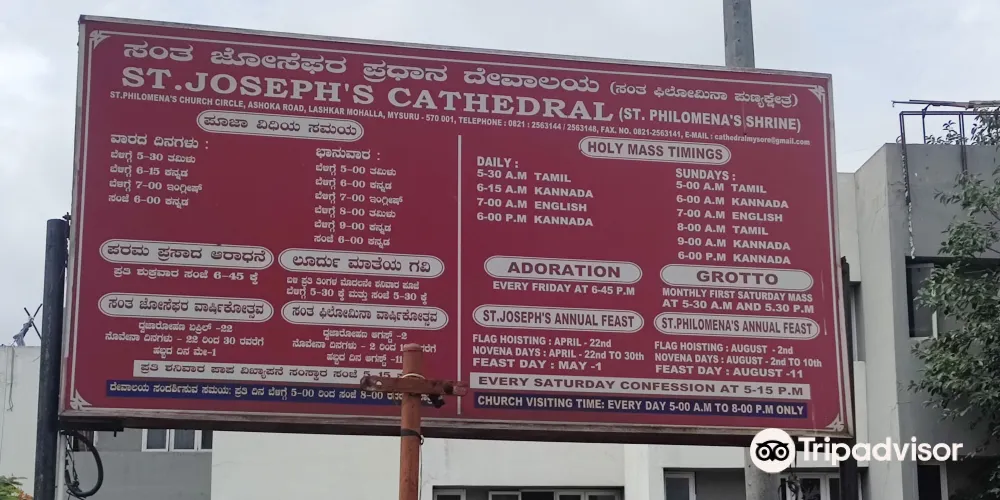 ಸಂತ ಜೋಸೆಫರ ಪ್ರಧಾನ ದೇವಾಲಯ (ಸಂತ ಫಿಲೋಮಿನಾ ಪುಣ್ಯಕ್ಷೇತ್ರ)
ST.JOSEPH'S CATHEDRAL (ST. PHILOMENA'S SHRINE)
ST.PHILOMENA'S CHURCH CIRCLE, ASHOKA ROAD, LASHKAR MOHALLA, MYSURU - 570 001, TELEPHONE : 0821 : 2563144 / 2563148, FAX. NO. 0821-2563141, E-MAIL : cathedralmysore@gmail.com
ಪೂಜಾ ವಿಧಿಯ ಸಮಯ
ವಾರದ ದಿನಗಳು :
ಬೆಳಿಗ್ಗೆ 5-30 ತಮಿಳು
ಬೆಳಿಗ್ಗೆ 6-15 ಕನ್ನಡ
ಬೆಳಿಗ್ಗೆ 7-00 ಇಂಗ್ಲೀಷ್
ಸಂಜೆ 6-00 ಕನ್ನಡ
ಭಾನುವಾರ :
ಬೆಳಿಗ್ಗೆ 5-00 ತಮಿಳು
ಬೆಳಿಗ್ಗೆ 6-00 ಕನ್ನಡ
ಬೆಳಿಗ್ಗೆ 7-00 ಇಂಗ್ಲೀಷ್
ಬೆಳಿಗ್ಗೆ 8-00 ತಮಿಳು
ಬೆಳಿಗ್ಗೆ 9-00 ಕನ್ನಡ
ಸಂಜೆ 6-00 ಕನ್ನಡ
ಪರಮ ಪ್ರಸಾದ ಆರಾಧನೆ
ಪ್ರತಿ ಶುಕ್ರವಾರ ಸಂಜೆ 6-45 ಕ್ಕೆ
ಲೂರ್ದು ಮಾತೆಯ ಗವಿ
ಪ್ರತಿ ತಿಂಗಳ ಮೊದಲನೇ ಶನಿವಾರ ಪೂಜೆ
ಬೆಳಿಗ್ಗೆ 5-30 ಕ್ಕೆ ಮತ್ತು ಸಂಜೆ 5-30 ಕ್ಕೆ
ಸಂತ ಜೋಸೆಫರ ವಾರ್ಷಿಕೋತ್ಸವ
ಧ್ವಜಾರೋಹಣ ಏಪ್ರಿಲ್ -22
ನೊವೇನಾ ದಿನಗಳು - 22 ರಿಂದ 30 ರವರೆಗೆ
ಹಬ್ಬದ ದಿನ ಮೇ-1
ಸಂತ ಫಿಲೋಮಿನಾ ವಾರ್ಷಿಕೋತ್ಸವ
ಧ್ವಜಾರೋಹಣ ಆಗಸ್ಟ್ -2
ನೊವೇನಾ ದಿನಗಳು - 2 ರಿಂದ 10
ಹಬ್ಬದ ದಿನ ಆಗಸ್ಟ್ -11
ಪ್ರತಿ ಶನಿವಾರ ಪಾಪ ವಿಜ್ಞಾಪನ ಸಂಸ್ಕಾರ ಸಂಜೆ 5-15
ದೇವಾಲಯ ಸಂದರ್ಶಿಸುವ ಸಮಯ: ಪ್ರತಿ ದಿನ ಬೆಳಿಗ್ಗೆ 5-00 ರಿಂದ ಸಂಜೆ 8-00
HOLY MASS TIMINGS
DAILY :
5-30 A.M TAMIL
6-15 A.M KANNADA
7-00 A.M ENGLISH
6-00 P.M KANNADA
SUNDAYS :
5-00 A.M TAMIL
6-00 A.M KANNADA
7-00 A.M ENGLISH
8-00 A.M TAMIL
9-00 A.M KANNADA
6-00 P.M KANNADA
ADORATION
EVERY FRIDAY AT 6-45 P.M
GROTTO
MONTHLY FIRST SATURDAY MASS
AT 5-30 A.M AND 5.30 P.M
ST.JOSEPH'S ANNUAL FEAST
FLAG HOISTING : APRIL - 22nd
NOVENA DAYS : APRIL -22nd TO 30th
FEAST DAY : MAY -1
ST.PHILOMENA'S ANNUAL FEAST
FLAG HOISTING : AUGUST - 2nd
NOVENA DAYS : AUGUST - 2nd TO 10th
FEAST DAY : AUGUST -11
EVERY SATURDAY CONFESSION AT 5-15 P.M
CHURCH VISITING TIME: EVERY DAY 5-00 A.M TO 8-00 P.M ONLY
Tripadvisor